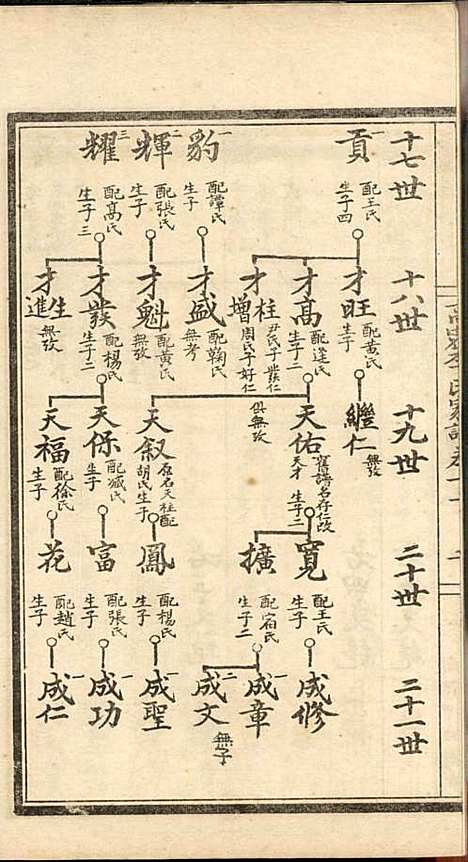 十七世
一貢
配王氏
生子四
一豹
配譚氏
生子
二輝
配張氏
生子
三耀
配高氏
生子三
十八世
才旺
配黃氏
生子
才高
配逄氏
生子二
才柱
尹氏子發仁
才增
周氏子好仁
俱無攷
才盛
配鞠氏
無考
才魁
配黃氏
無攷
才發
配楊氏
生子二
才生
才進
無攷
十九世
繼仁
無攷
天佑
舊譜名存仁改
天才
生子二
天叙
原名天柱配
胡氏生子
天保
配臧氏
生子
天福
配徐氏
生子
二十世
寬
配王氏
生子
擴
配宿氏
生子二
鳳
配楊氏
生子
富
配張氏
生子
花
配趙氏
生子
二十一世
一成修
一成章
二成文
無子
一成聖
一成功
一成仁